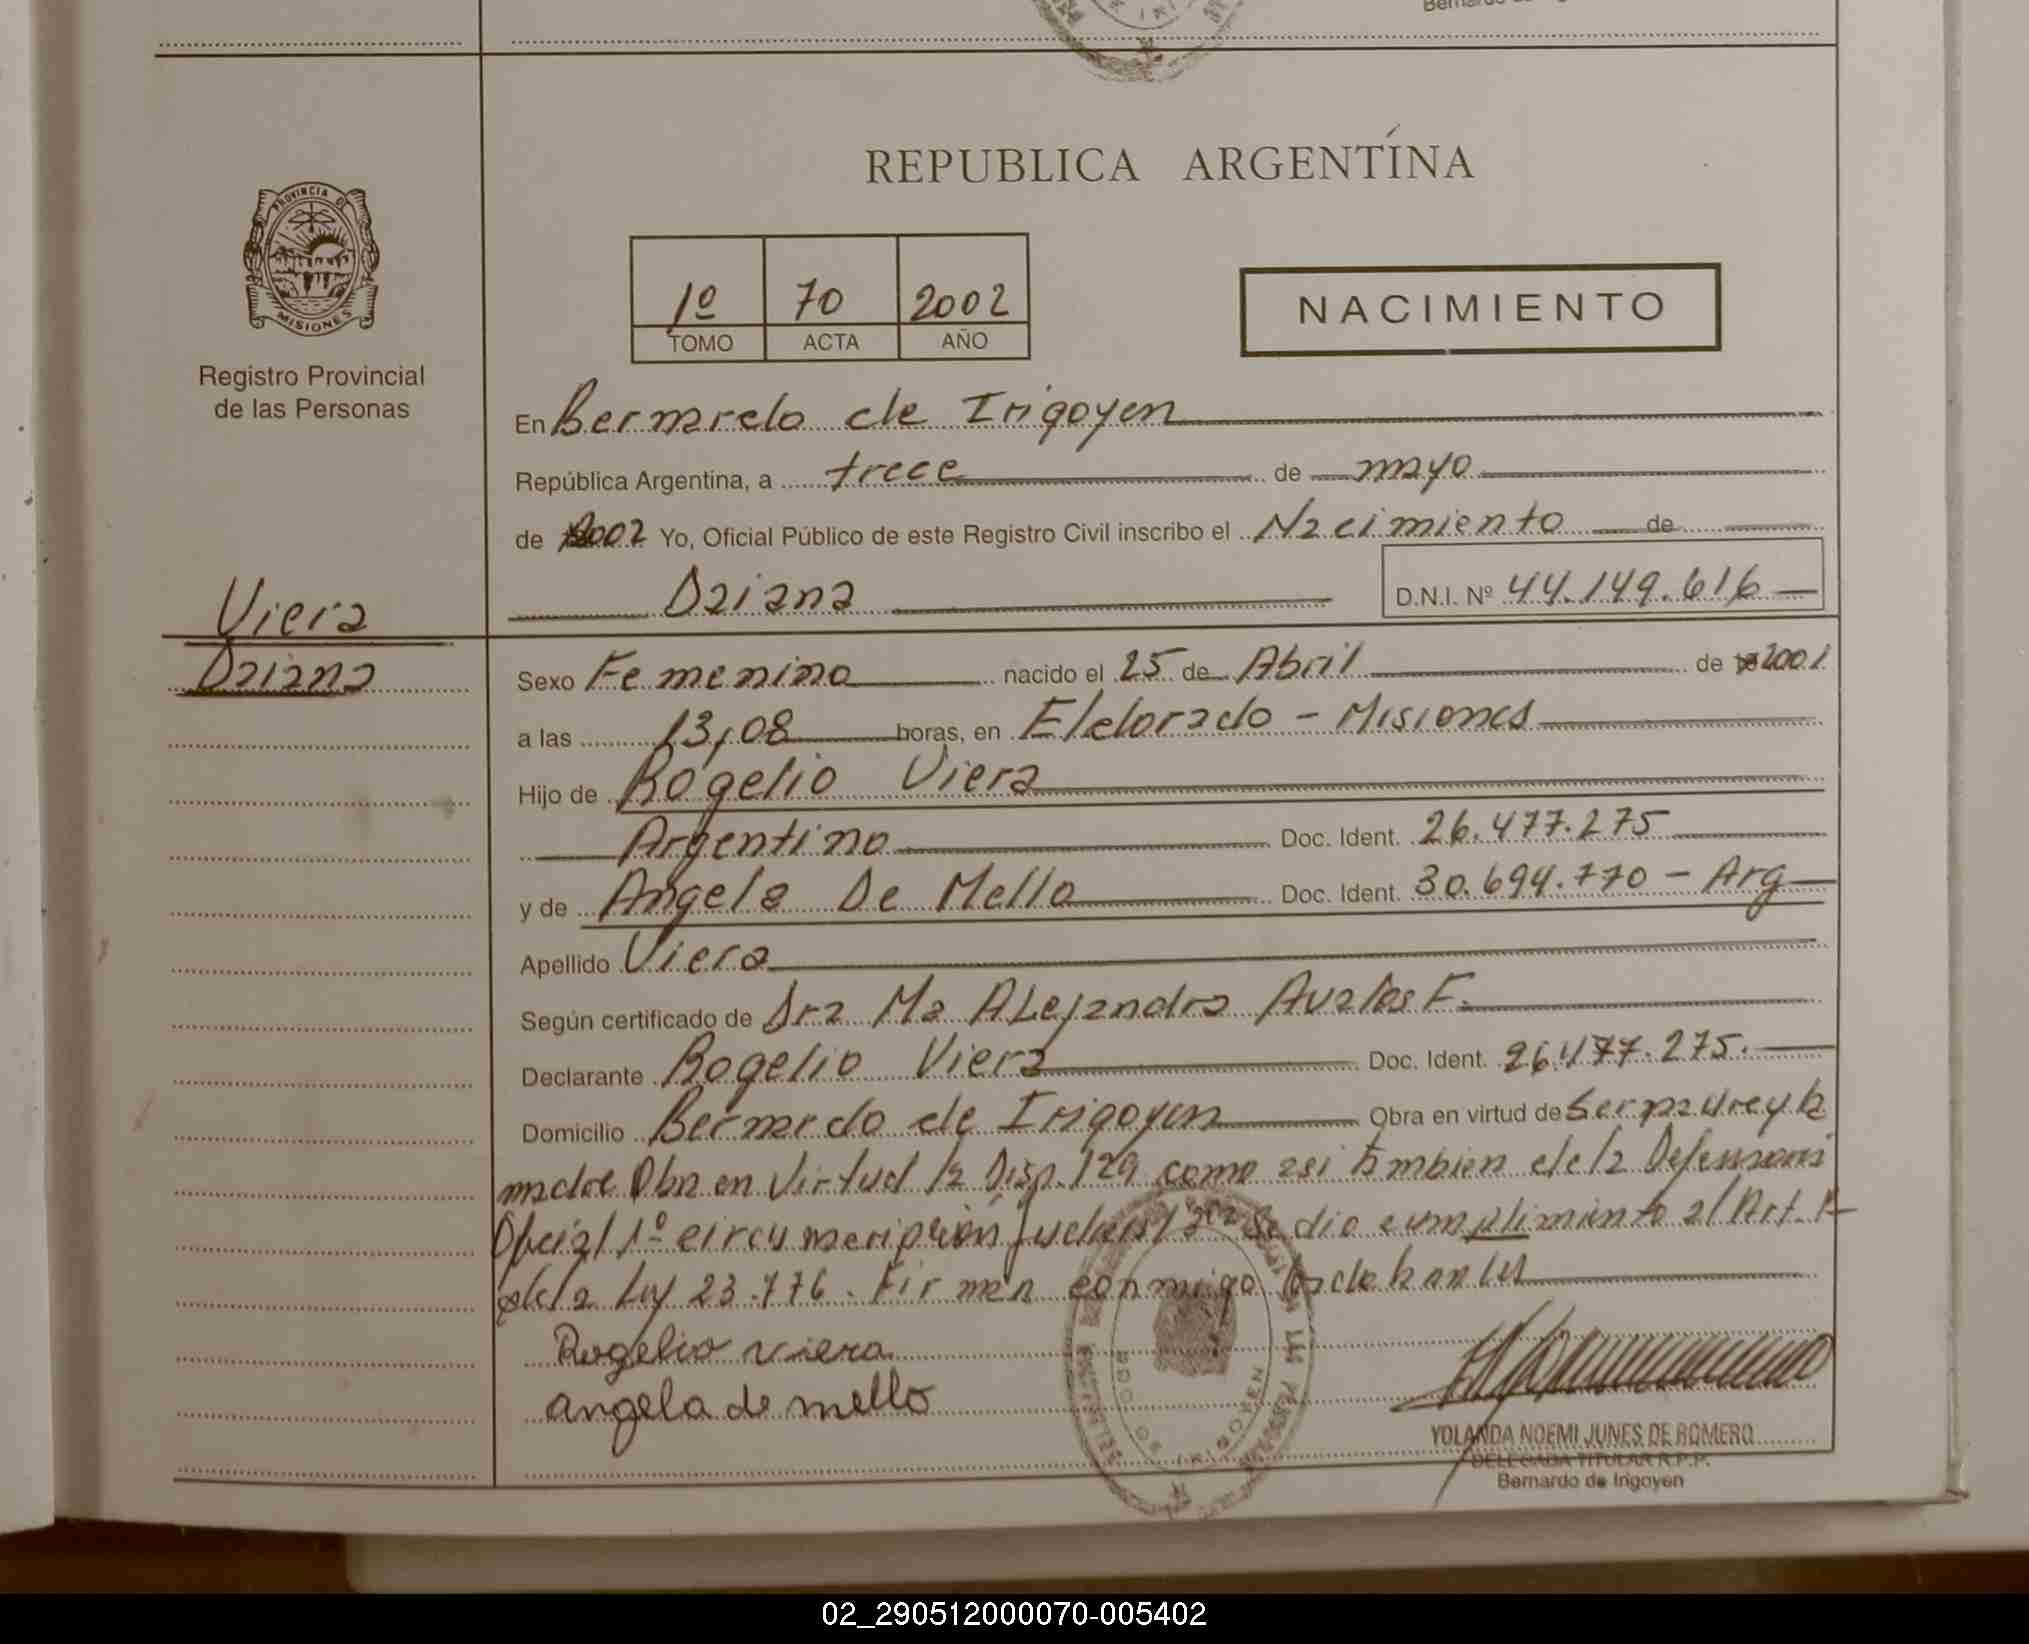 REPUBLICA ARGENTÍNA
PROVINCIA DE
MISIONES
Registro Provincial
de las Personas
1º 70 2002
TOMO ACTA AÑO
NACIMIENTO
En Bernardo de Irigoyen
República Argentina, a trece de mayo
de 2002 Yo, Oficial Público de este Registro Civil inscribo el Nacimiento de
Daiana D.N.I. Nº 44.149.616
Viera
Daiana
Sexo Femenino nacido el 25 de Abril de 2001
a las 13,08 horas, en Eldorado - Misiones
Hijo de Rogelio Viera
Argentino Doc. Ident. 26.477.275
y de Angela De Mello Doc. Ident. 30.694.770 - Arg
Apellido Viera
Según certificado de Dra Ma ALejandra Avalos F.
Declarante Rogelio Viera Doc. Ident. 26.477.275.
Domicilio Bernardo de Irigoyen Obra en virtud de Ser padre y la
madre Obra en Virtud la Disp. 129 como asi tambien de la Defensoria
Oficial 1º circunscripción Judicial se dio cumplimiento al Art.
de la Ley 23.776. Firman conmigo
Rogelio viera
angela de mello
YOLANDA NOEMI JUNES DE ROMERO
DELEGADA TITULAR R.P.P.
Bernardo de Irigoyen
02_290512000070-005402